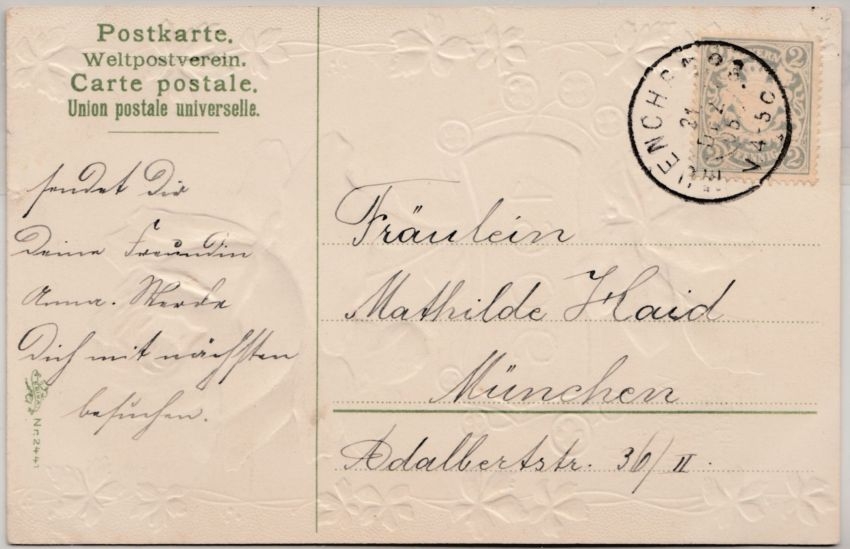 Postkarte.
Weltpostverein.
Carte postale.
Union postale universelle.
sendet dir
Deine Freundin
Anna. Werde
Dich mit nächsten
besuchen.
Fräulein
Mathilde Haid
München
Adalbertstr. 36/II.
Nr. 244
2 2
2 2